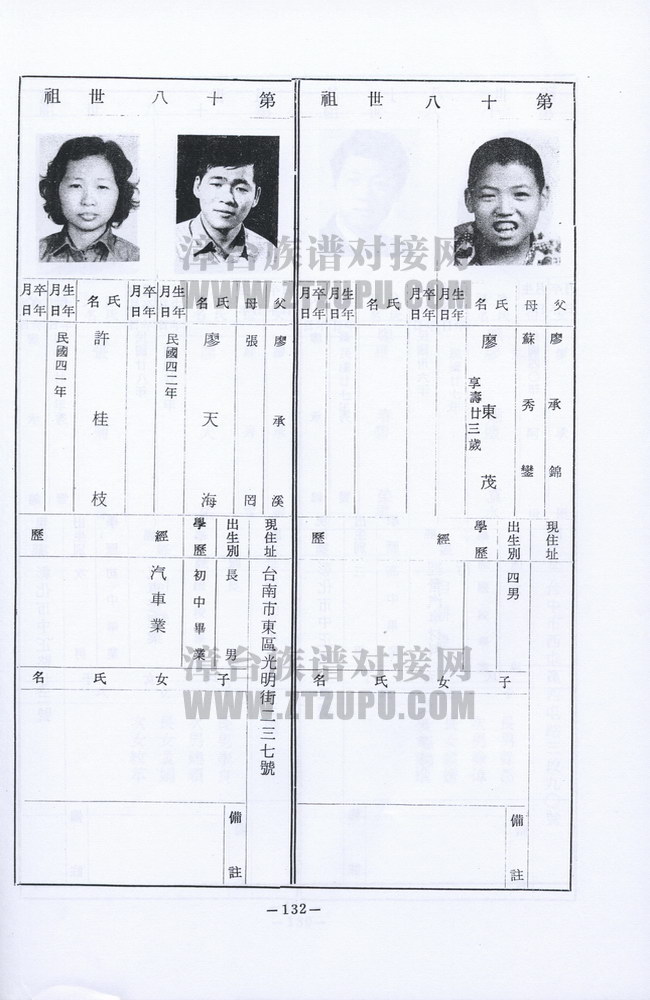 第十八世祖
父
廖承錦
母
蘇秀鑾
氏名
廖東茂
享壽廿三歲
生年月日
卒年月日
氏名
生年月日
卒年月日
現住址
出生別
四男
學歷
經歷
子女氏名
備註
第十八世祖
父
廖承溪
母
張罔
氏名
廖天海
生年月日
民國四二年
卒年月日
氏名
許桂枝
生年月日
民國四一年
卒年月日
現住址
台南市東區光明街二三七號
出生別
長男
學歷
初中畢業
經歷
汽車業
子女氏名
備註
漳台族谱对接网
WWW.ZTZUPU.COM
漳台族谱对接网
WWW.ZTZUPU.COM
—132—